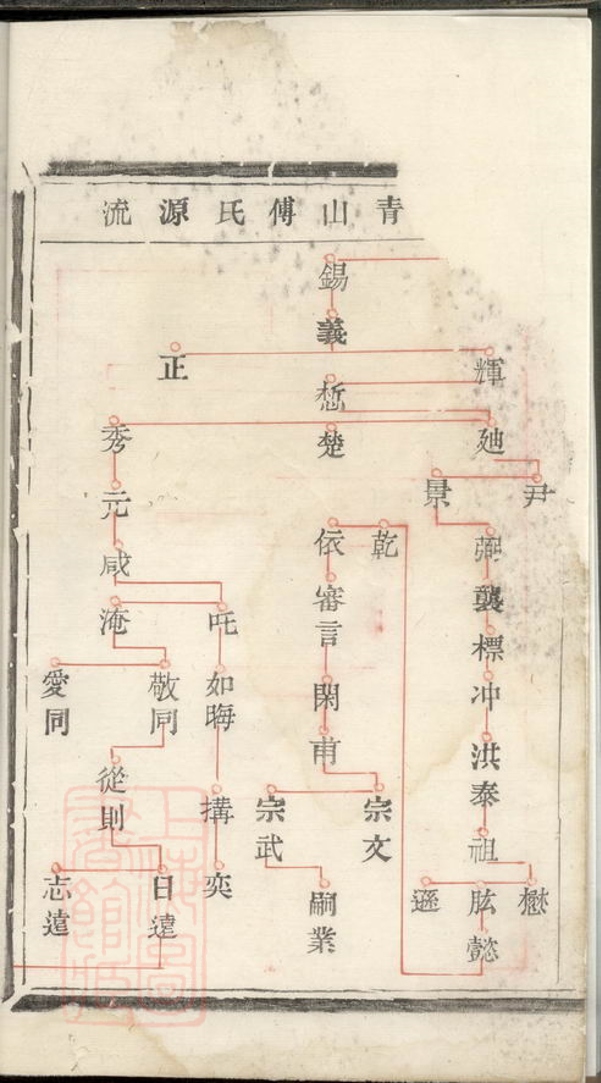 青山傅氏源流
錫
義
輝
正
悊
廸
楚
秀
尹
景
弼
襲
標
冲
洪泰
祖
懋
肱
懿
遜
乾
依
審言
閑
甫
宗文
宗武
嗣業
元
咸
淹
如晦
敬同
愛同
搆
從則
奕
日遠
志遠